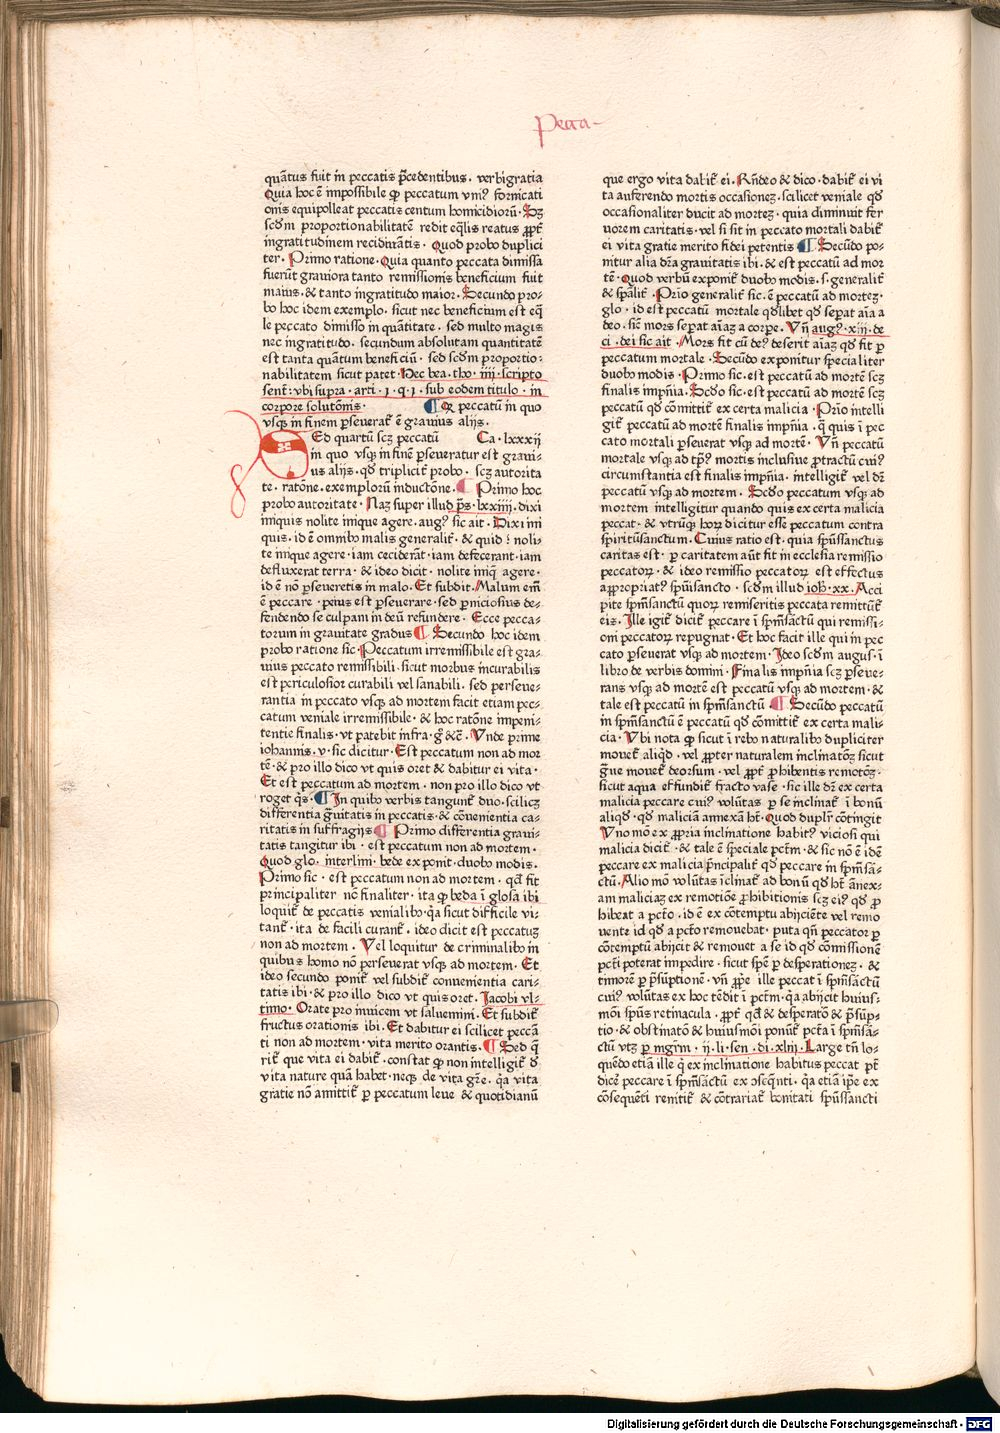 Pecca-
quātus fuit in peccatis p̄cedentibus. verbigratia
Quia hoc ē impossibile ꝙ peccatum vniꝰ fornicati
onis equipolleat peccatis centum homicidiorū. Sꝫ
scd̄m proportionabilitatē redit eq̄lis reatus ꝓpt̄
ingratitudinem recidiuātis. Quod probo duplici
ter. Primo ratione. Quia quanto peccata dimissa
fuerūt grauiora tanto remissionis beneficium fuit
maius. & tanto ingratitudo maior. Secundo pro-
bo hoc idem exemplo. sicut nec beneficium est eq̄
le peccato dimisso in quātitate. sed multo magis
nec ingratitudo. secundum absolutam quantitatē
est tanta quātum beneficiū. sed scd̄m proportio-
nabilitatem sicut patet. Hec bea. tho. iiii. scripto
sent̄. vbi supra. arti. 1. q. 1. sub eodem titulo. in
corpore solutōnis. ¶ Qꝫ peccatū in quo
vsqꝫ in finem ꝑseuerat̄ ē grauius alijs.
SEd quartū scꝫ peccatū Ca. lxxxij
in quo vsqꝫ in finē ꝑseueratur est graui-
us alijs. qd̄ triplicit̄ probo. scꝫ autorita
te. ratōne. exemplorū inductōne. ¶ Primo hoc
probo autoritate. Naꝫ super illud p̄s. lxxiiij. dixi
iniquis nolite inique agere. augꝰ sic ait. Dixi ini
quis. id ē omnibo malis generalit̄. & quid? noli-
te inique agere. iam ceciderāt. iam defecerant. iam
defluxerat terra. & ideo dicit. nolite iniq̄ agere.
id ē nō ꝑseueretis in malo. Et subdit. Malum em̄
ē peccare. peius est ꝑseuerare. sed ꝑniciosius de-
fendendo se culpani in deū refundere. Ecce pecca-
torum in grauitate gradus ¶ Secundo hoc idem
probo ratione sic. Peccatum irremissibile est gra-
uius peccato remissibili. sicut morbus incurabilis
est periculosior curabili vel sanabili. sed perseue-
rantia in peccato vsqꝫ ad mortem facit etiam pec-
catum veniale irremissibile. & hoc ratōne impeni-
tentie finalis. vt patebit infra. g̊ &c̄. Vnde prime
iohannis. v. sic dicitur. Est peccatum non ad mor
tē. & pro illo dico vt quis oret & dabitur ei vita.
Et est peccatum ad mortem. non pro illo dico vt
roget q̄s. ¶ In quibo verbis tangunt̄ duo. scilicꝫ
differentia ḡuitatis in peccatis. & cōuenientia ca-
ritatis in suffragijs ¶ Primo differentia graui-
tatis tangitur ibi. est peccatum non ad mortem.
Quod glo. interlini. bede exponit. duobo modis.
Primo sic. est peccatum non ad mortem. qd̄ fit
principaliter nō finaliter. ita ꝙ beda ī glosa ibi
loquit̄ de peccatis venialibo. q̄a sicut difficile vi-
tant̄. ita de facili curant̄. ideo dicit est peccatuꝫ
non ad mortem. Vel loquitur de criminalibo in
quibus homo nō perseuerat vsqꝫ ad mortem. Et
ideo secundo ponit̄ vel subdit̄ conuenientia cari-
tatis ibi. & pro illo dico vt quis oret. Jacobi vl-
timo. Orate pro inuicem vt saluemini. Et subdit̄
fructus orationis ibi. Et dabitur ei scilicet peccā
ti non ad mortem. vita merito orantis. ¶ Sed q̄
rit̄ que vita ei dabit̄. constat ꝙ non intelligit̄ d̄
vita nature quā habet. neqꝫ de vita gr̄e. q̄a vita
gratie nō amittit̄ ꝑ peccatum leue & quotidianū
que ergo vita dabit̄ ei. Rn̄deo & dico. dabit̄ ei vi
ta auferendo mortis occasioneꝫ. scilicet veniale qd̄
occasionaliter ducit ad morteꝫ. quia diminuit fer
uorem caritatis. vel si sit in peccato mortali dabit̄
ei vita gratie merito fidei petentis ¶ Secūdo po-
nitur alia dr̄a grauitatis ibi. & est peccatū ad mor
tē. Quod verbū exponit̄ duobo modis. s. generalit̄
& sp̄alit̄. Prīo generalit̄ sic. ē peccatū ad morteꝫ.
glo. id est peccatū mortale qd̄libet qd̄ sepat aīa a
deo. sicē mors sepat aīaꝫ a corpe. Vn̄ augꝰ. xiij. de
ci. dei sic ait. Mors fit cū deꝰ deserit aīaꝫ qd̄ fit ꝑ
peccatum mortale. Secūdo exponitur specialiter
duobo modis. Primo sic. est peccatū ad mortē scꝫ
finalis impn̄ia. Scd̄o sic. est peccatū ad mortē scꝫ
peccatū qd̄ cōmittit̄ ex certa malicia. Prīo intelli
git̄ peccatū ad mortē finalis impn̄ia. q̄ quis ī pec
cato mortali ꝑseuerat vsqꝫ ad mortē. Vn̄ peccatū
mortale vsqꝫ ad tp̄ꝰ mortis inclusiue ꝓtractū cuiꝰ
circumstantia est finalis impn̄ia. intelligit̄ vel dr̄
peccatū vsqꝫ ad mortem. Scd̄o peccatum vsqꝫ ad
mortem intelligitur quando quis ex certa malicia
peccat. & vtrūqꝫ hoꝝ dicitur esse peccatum contra
spiritūsanctum. Cuius ratio est. quia sp̄ussanctus
caritas est. ꝑ caritatem aūt fit in ecclesia remissio
peccatoꝝ. & ideo remissio peccatoꝝ est effectus
appropriatꝰ spūisancto. scd̄m illud ioh̄. xx. Acci
pite spm̄sanctū quoꝝ remiseritis peccata remittūt̄
eis. Ille igit̄ dicit̄ peccare ī spm̄sāctū qui remissi-
oni peccatoꝝ repugnat. Et hoc facit ille qui in pec
cato ꝑseuerat vsqꝫ ad mortem. Ideo scd̄m augus. ī
libro de verbis domini. Finalis impn̄ia scꝫ ꝑseue-
rans vsqꝫ ad mortē est peccatū vsqꝫ ad mortem. &
tale est peccatū in spm̄sanctū. ¶ Secūdo peccatū
in spm̄sanctū ē peccatū qd̄ cōmittit̄ ex certa mali-
cia. Vbi nota ꝙ sicut ī rebo naturalibo dupliciter
mouet̄ aliqd̄. vel ꝓpter naturalem inclinatōꝫ sicut
ḡue mouet̄ deorsum. vel ꝓpt̄ ꝓhibentis remotōꝫ.
sicut aqua effundit̄ fracto vase. sic ille dr̄ ex certa
malicia peccare cuiꝰ volūtas ꝑ se inclinat̄ ī bonū
aliqd̄. qd̄ maliciā annexā hȝ. Quod duplr̄ cōtingit
Vno mō ex ꝓpria inclinatione habitꝰ viciosi qui
malicia dicit̄. & tale ē speciale pctm̄. & sic nō ē idē
peccare ex malicia p̄ncipalit̄ qd̄ peccare in spm̄sā-
ctū. Alio mō volūtas īclinat̄ ad bonū qd̄ ht̄ ānex-
am maliciaꝫ ex remotiōe ꝓhibitionis scꝫ eiꝰ qd̄ ꝓ
hibeat a pctō. id ē ex cōtemptu abijciēte vel remo
uente id qd̄ a pctō remouebat. puta qn̄ peccator ꝑ
cōtemptū abijcit & remouet a se id qd̄ cōmissionē
pcti poterat impedire. sicut spē ꝑ desperationeꝫ. &
timorē ꝑ p̄suptionē. vn̄ ꝓpe ille peccat ī spm̄sāctū
cuiꝰ volūtas ex hoc tēdit ī pctm̄. q̄a abijcit huius-
mōi spūs retinacula. ꝓpt̄ qd̄ & desperatō & p̄sup-
tio & obstinatō & huiusmōi ponūt̄ pctā ī spm̄sā-
ctū vtꝫ ꝑ mgr̄m. ij. li. sen. di. xliij. Large tn̄ lo-
quēdo etiā ille q̄ ex inclinatione habitus peccat pt̄
dicē peccare ī spm̄sāctū ex ɔseq̄nti. q̄a etiā ip̄e ex
cōsequēti renitit̄ & cōtrariat̄ bonitati spūssancti
Digitalisierung gefördert durch die Deutsche Forschungsgemeinschaft - DFG